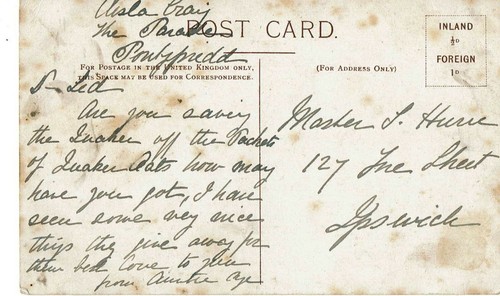 Ailsa Craig
The Parade
Pontypridd
POST CARD.
FOR POSTAGE IN THE UNITED KINGDOM ONLY,
THIS SPACE MAY BE USED FOR CORRESPONDENCE.
(FOR ADDRESS ONLY)
INLAND
½D
FOREIGN
1D
Ted
Are you saving
the Quaker off the Packets
of Quaker Oats how many
have you got, I have
seen some very nice
things they give away for
them best love to you
from Auntie
Master
127
Street
Ipswich